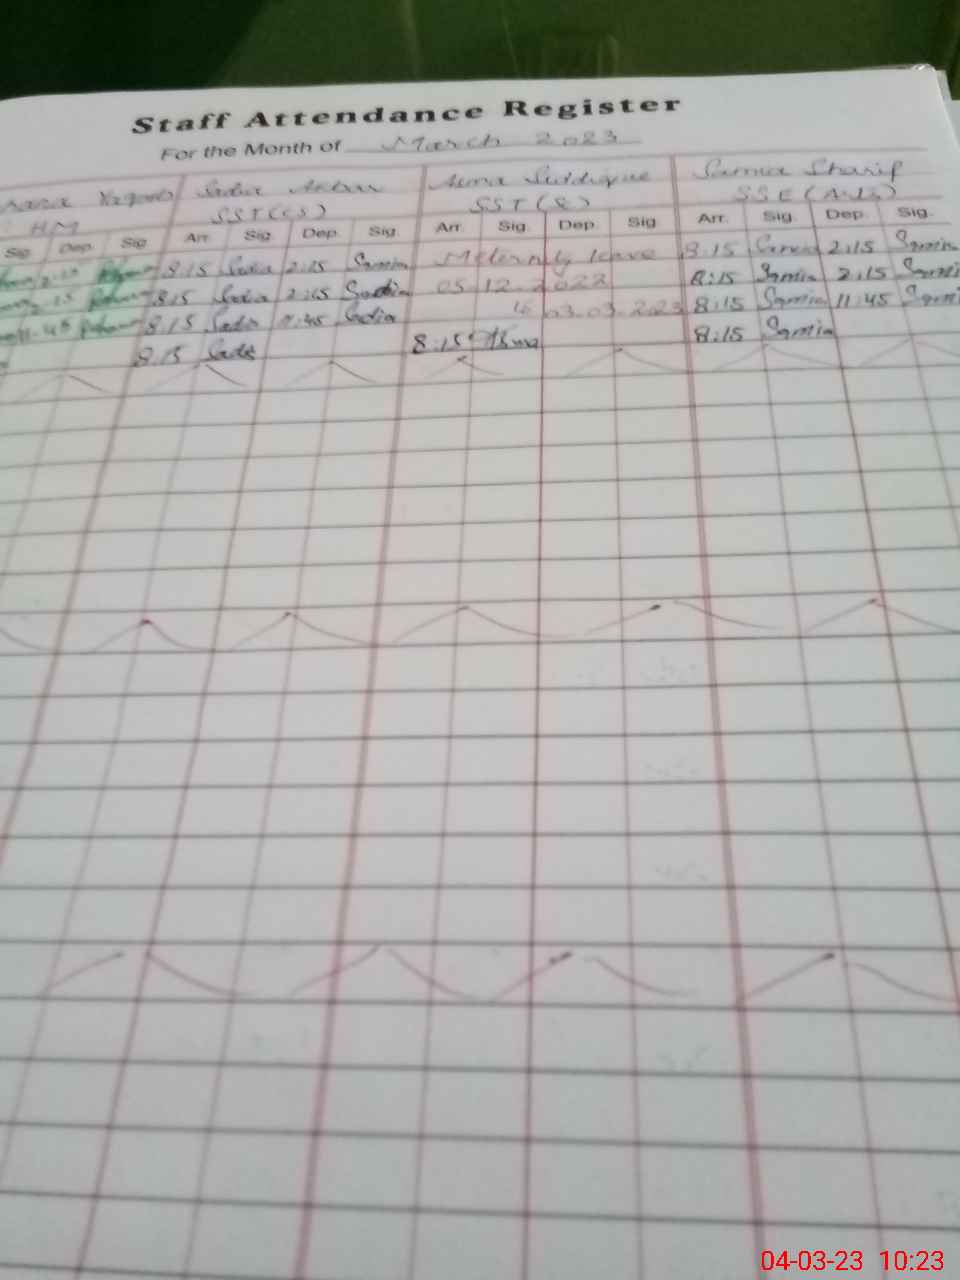 Staff Attendance Register
For the Month of March 2023
Sadia Samia Sharif
HM SST (CS) SST (S) SSE (Arts)
Sig Dep. Sig Arr. Sig. Dep. Sig. Arr. Sig. Dep. Sig. Arr. Sig. Dep. Sig.
2:15 8:15 Sadia 2:15 Maternity leave 8:15 Samia 2:15 Samia
2:15 8:15 Sadia 2:15 Sadia 05.12.2022 8:15 Samia 2:15 Samia
11:45 8:15 Sadia 11:45 Sadia to 03.03.2023 8:15 Samia 11:45 Samia
8:15 Sadia 8:15 Asma 8:15 Samia
04-03-23 10:23